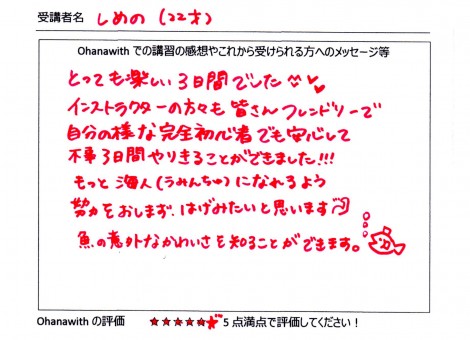 受講者名 しめの (22才)
Ohanawith での講習の感想やこれから受けられる方へのメッセージ等
とっても楽しい3日間でした
インストラクターの方々も皆さんフレンドリーで
自分の様な完全初心者でも安心して
不事3日間やりきることができました!!!
もっと海人(うみんちゅ)になれるよう
努力をおしまず、はげみたいと思います
魚の意外なかわいさを知ることができます。
Ohanawith の評価 ★★★★★ 5点満点で評価してください!